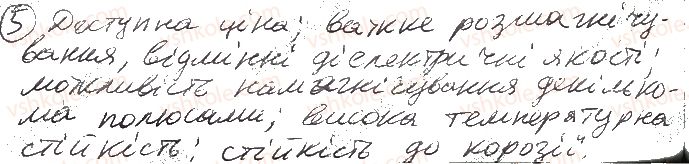 5 Доступна ціна; важке розмагнічу-
вання, відмінні діелектричні якості;
можливість намагнічування декілько-
ма полюсами; висока температурна
стійкість; стійкість до корозії.